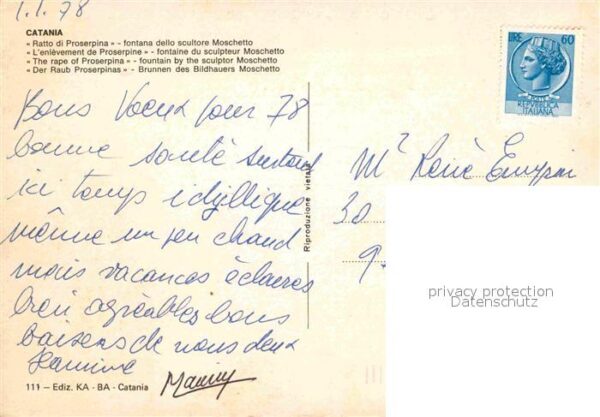 1.1.78
CATANIA
« Ratto di Proserpina » - fontana dello scultore Moschetto
« L'enlèvement de Proserpine » - fontaine du sculpteur Moschetto
« The rape of Proserpina » - fountain by the sculptor Moschetto
« Der Raub Proserpinas » - Brunnen des Bildhauers Moschetto
LIRE 60
POSTE
REPVBBLICA
ITALIANA
Bons Voeux pour 78
bonne santé surtout
ici temps idyllique
même un peu chaud
mais vacances éclaires
bien agréables bons
baisers de nous deux
Jeannine
Riproduzione vietata
Mr René
30
9
privacy protection
Datenschutz
111 — Ediz. KA - BA - Catania